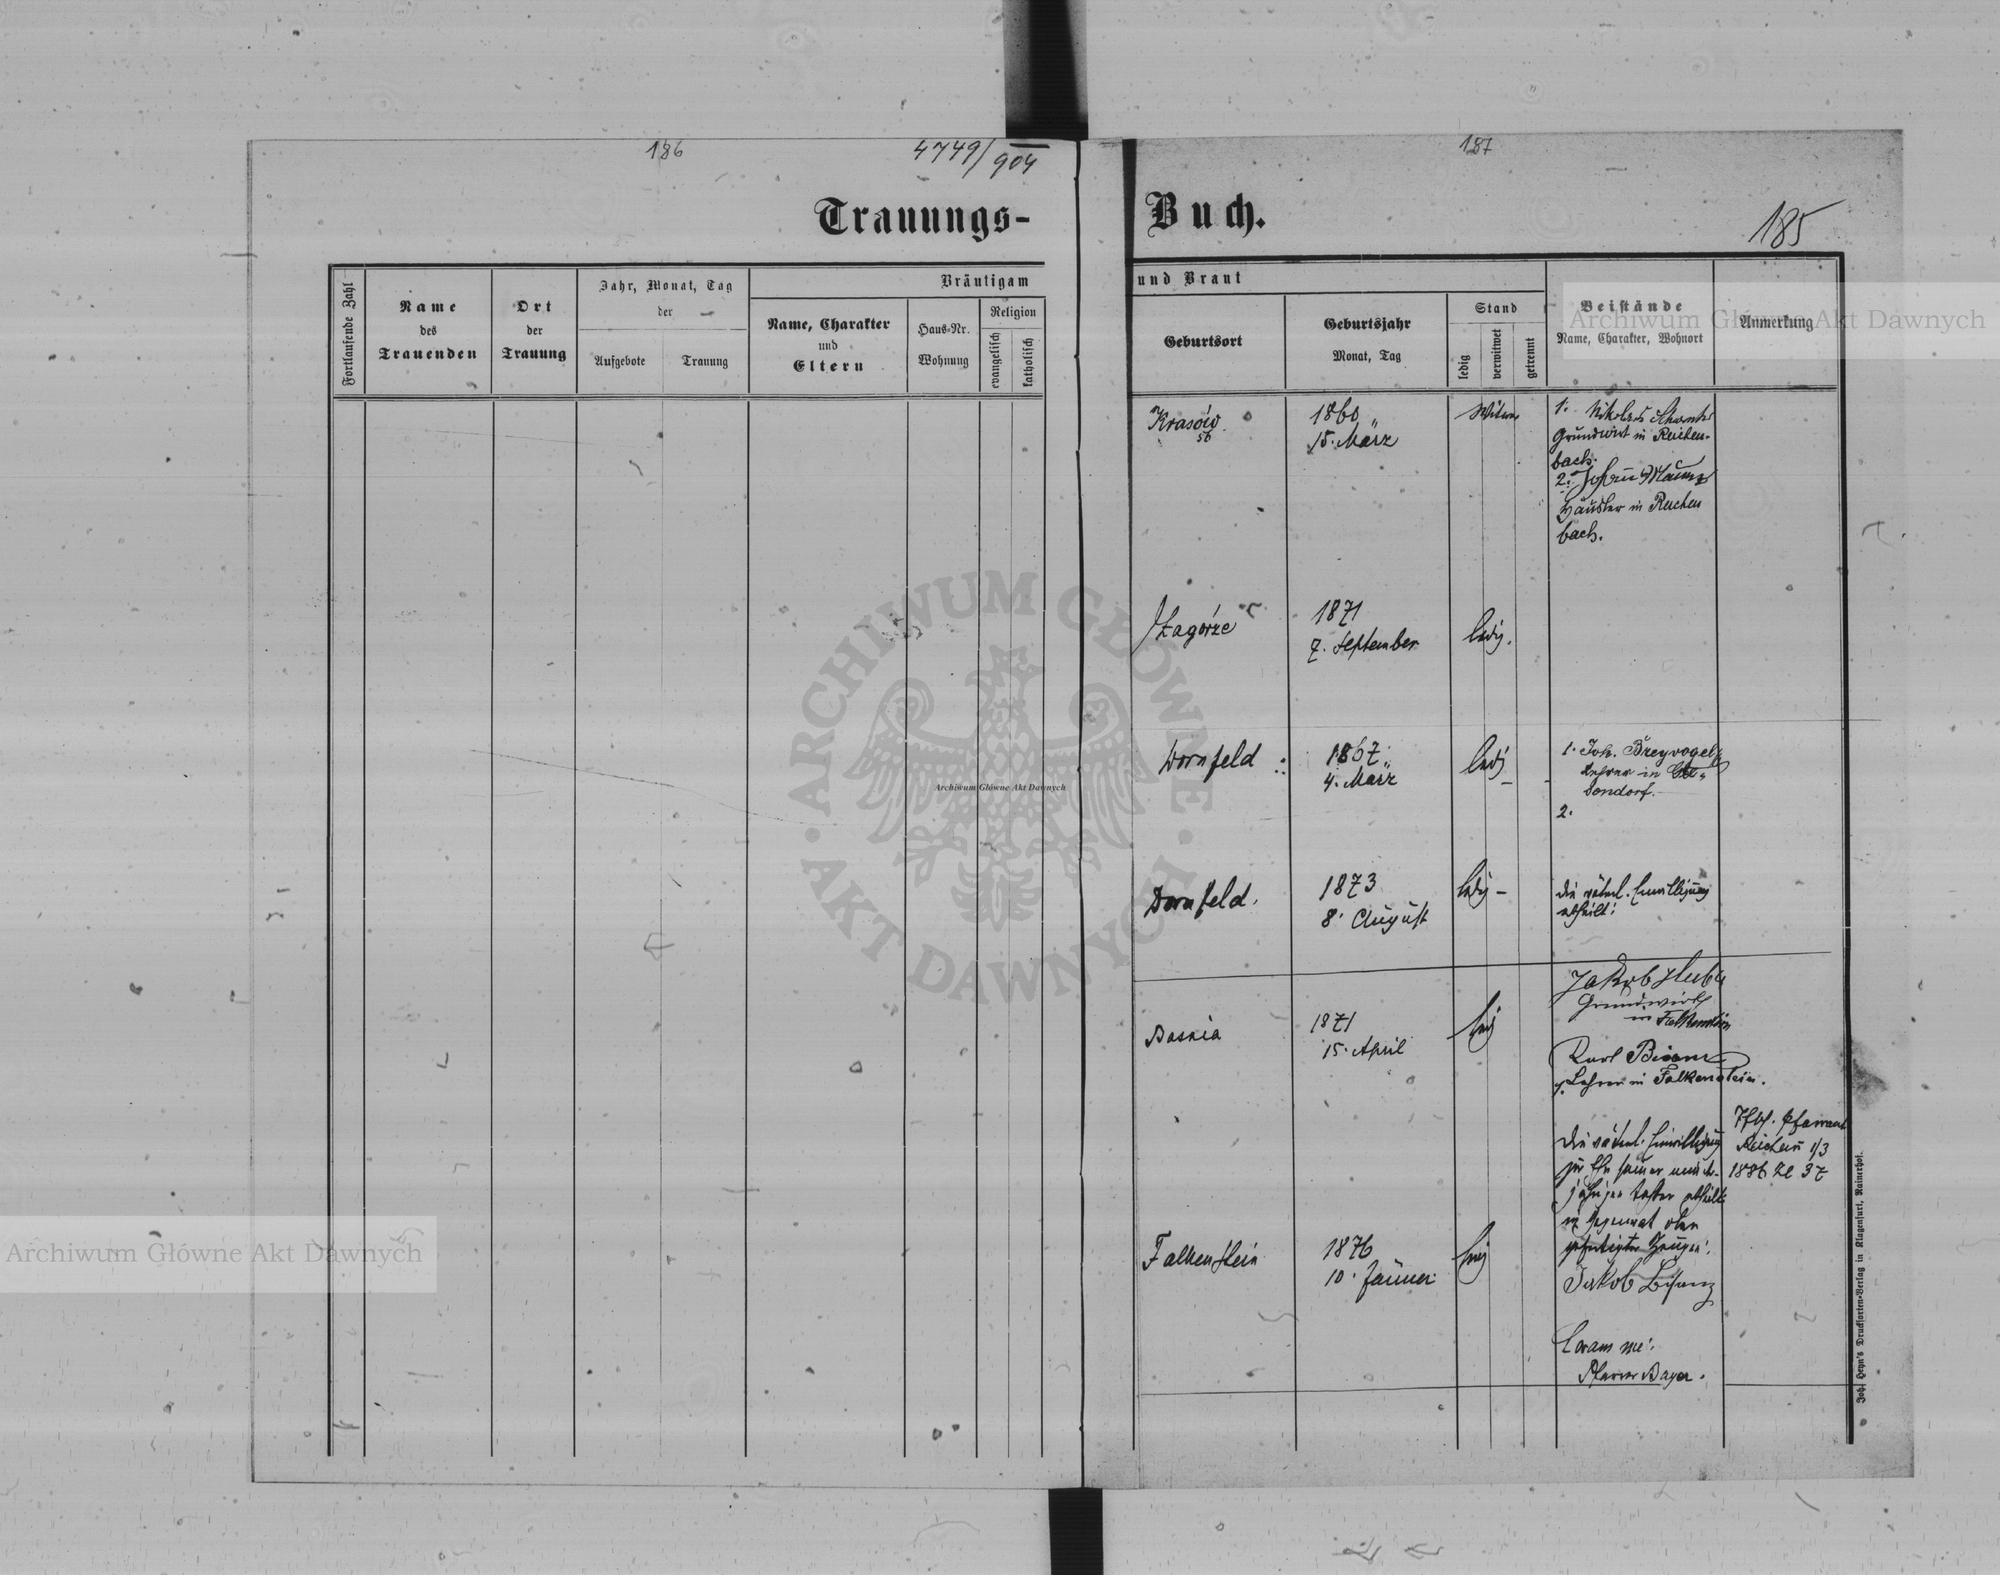 186
4749/904
187
Trauungs-
Buch.
185
Fortlaufende Zahl
Name
des
Trauenden
Ort
der
Trauung
Jahr, Monat, Tag
der
Aufgebote
Trauung
Bräutigam
Name, Charakter
und
Eltern
Haus-Nr.
Wohnung
Religion
evangelisch
katholisch
und Braut
Geburtsort
Geburtsjahr
Monat, Tag
Stand
ledig
verwitwet
getrennt
Beistände
Name, Charakter, Wohnort
Anmerkung
Krasów
56
1860
15. März
1. Nikolaus
Grundwirt in Reichen-
bach.
2. Johann Manz
Häusler in Reichen
bach.
Zagórze
1871
7. September
ledig.
Dornfeld
1867
4. März
ledig
1. Joh. Breyvogel
Lehrer in
dondorf.
2.
Dornfeld.
1873
8. August
ledig -
Die väterl. Einwilligung
ertheilt:
Jakob Huber
Grundwirth
in Falkenstein
Bosnia
1871
15. April
ledig
Karl
Lehrer in Falkenstein.
Die väterl. Einwilligung
zur Ehe seiner minder-
jährigen Tochter ertheilt
in Gegenwart oben
gefertigter Zeugen:
Jakob Bisanz
Pfarramt
1/3
1886 Zl 37
Falkenstein
1876
10. Jänner
ledig
Coram me:
Pfarrer Bayer.
Joh. Heyn's Drucksorten-Verlag in Klagenfurt, Rainerhof.
Archiwum Główne Akt Dawnych
Archiwum Główne Akt Dawnych
Archiwum Główne Akt Dawnych
ARCHIWUM GŁÓWNE · AKT DAWNYCH ·